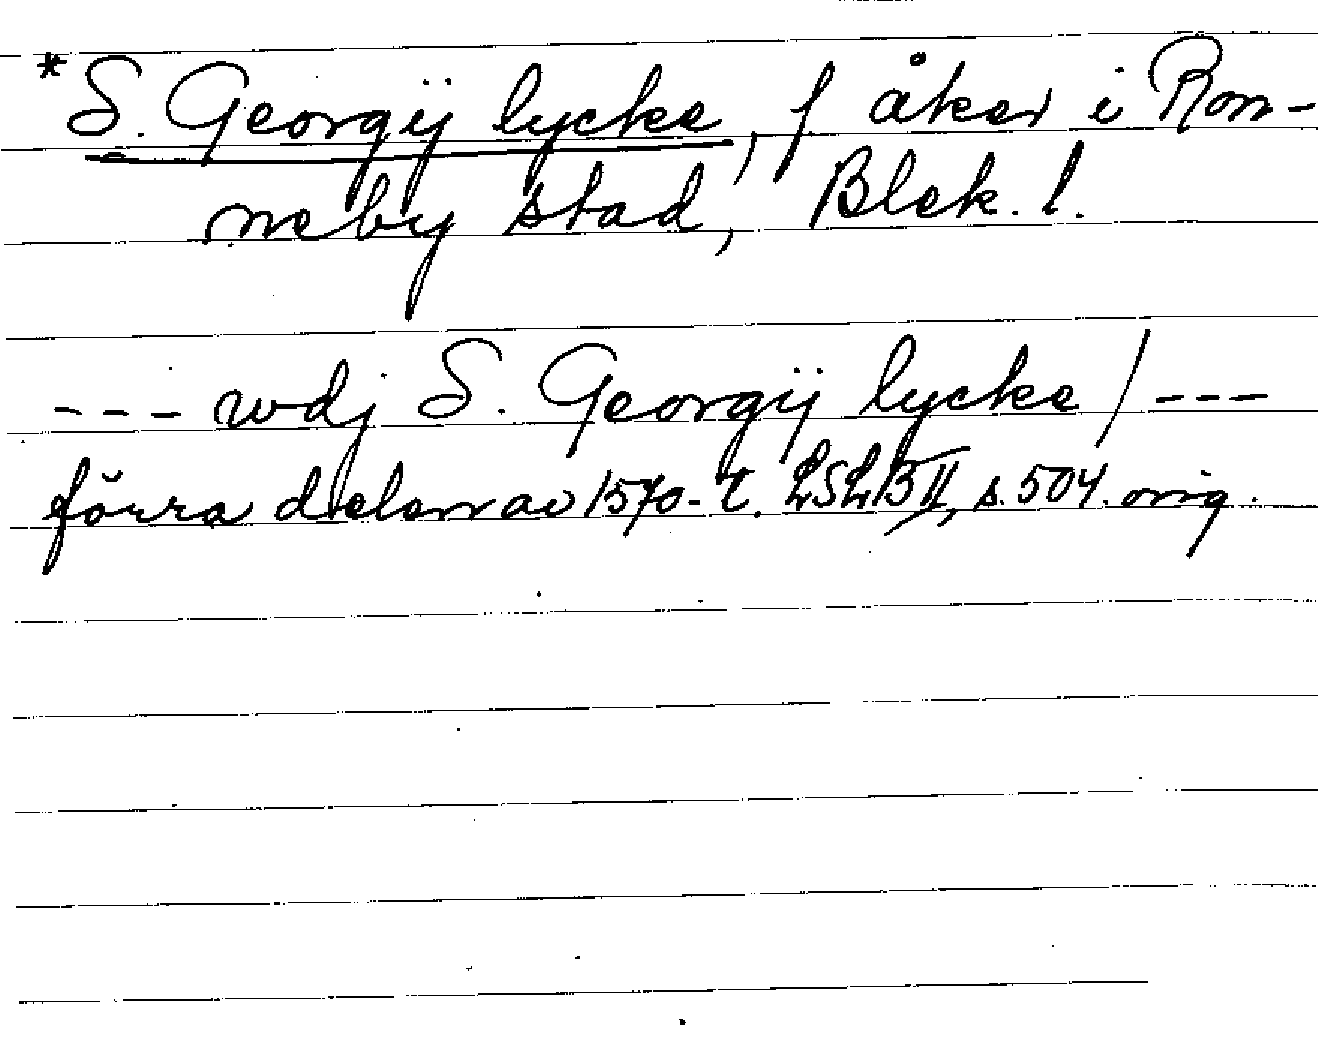 *S. Georgij lycke, f åker i Ron-
neby stad, Blek. l.
--- wdj S. Georgij lycke / ---
förra delen av 1570-t. LSLB II, s. 504. orig.